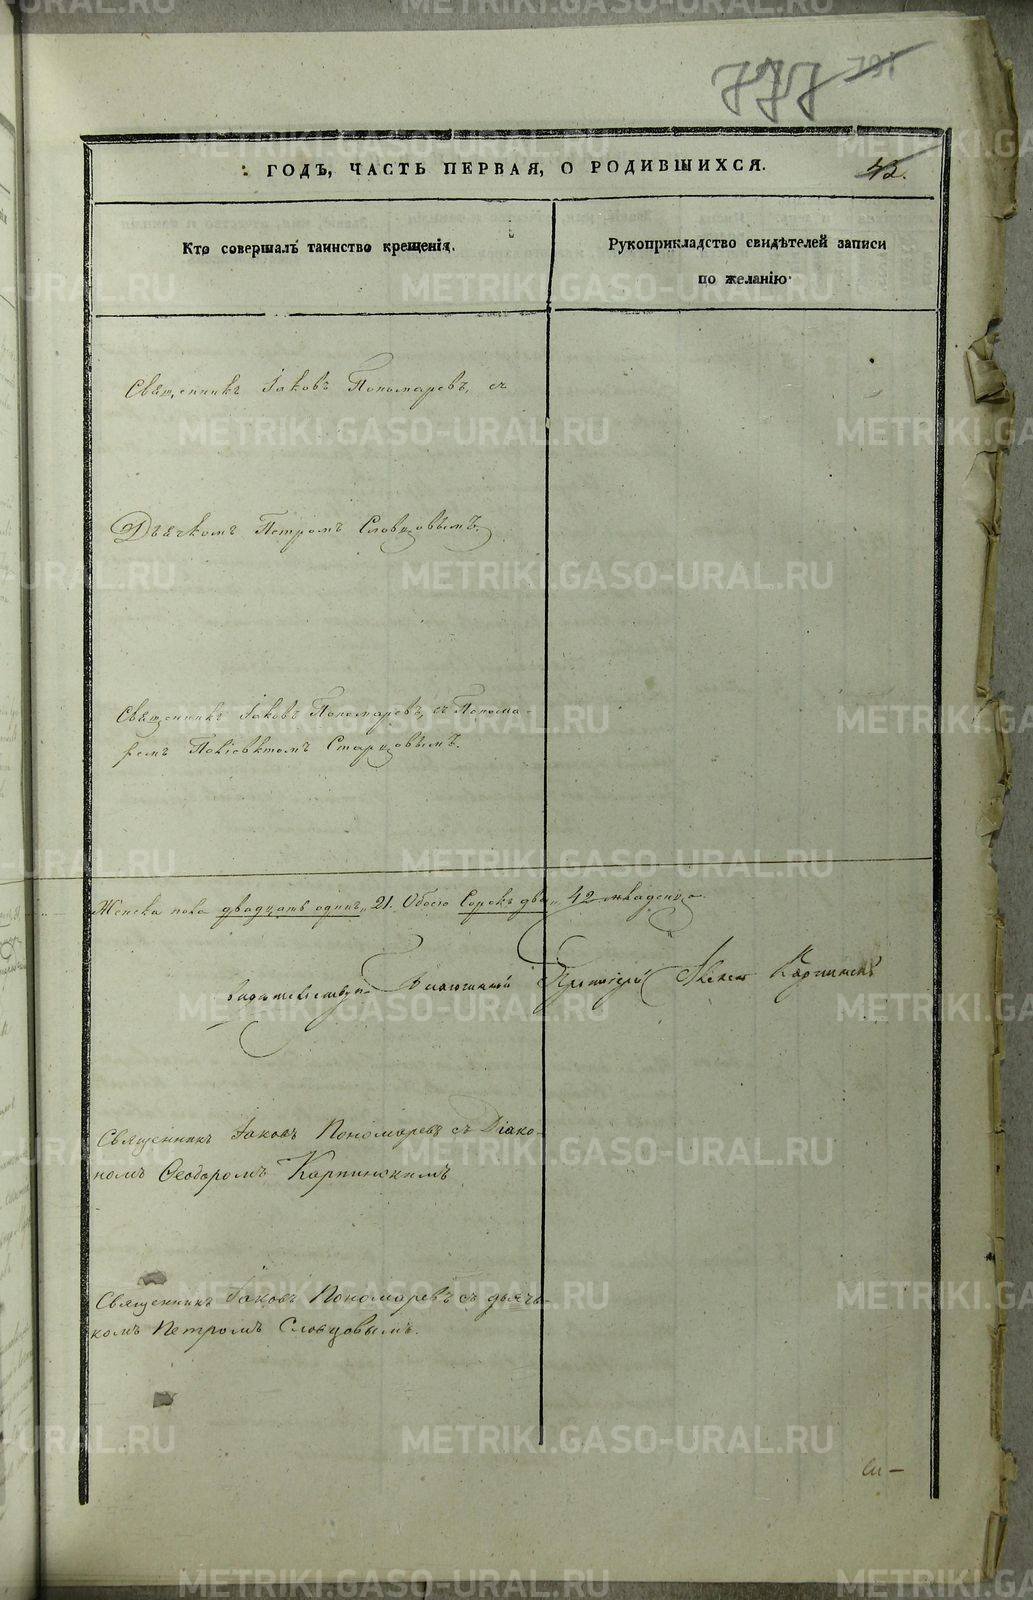 777 791
ГОДЪ, ЧАСТЬ ПЕРВАЯ, О РОДИВШИХСЯ. 42.
Кто совершалъ таинство крещенія.
Рукоприкладство свидѣтелей записи
по желанію
Священникъ Іаковъ Пономаревъ, съ
Дьячкомъ Петромъ Словцовымъ.
Священникъ Іаковъ Пономаревъ, съ Понома-
ремъ Поліевктомъ Старцовымъ.
Женска пола двадцать одинъ, 21. Обоего Сорокъ два, 42 младенца
Благочинный Протоіерей
Священникъ Іаковъ Пономаревъ съ Діако-
номъ Ѳеодоромъ Карпинскимъ
Священникъ Іаковъ Пономаревъ съ дьяч-
комъ Петромъ Словцовымъ.
METRIKI.GASO-URAL.RU